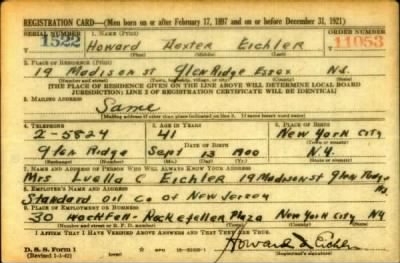 REGISTRATION CARD—(Men born on or after February 17, 1897 and on or before December 31, 1921)
SERIAL NUMBER 1. NAME (Print) ORDER NUMBER
1522 Howard Dexter Eichler 11053
(First) (Middle) (Last)
2. PLACE OF RESIDENCE (Print)
19 Madison st Glen Ridge Essex N.J.
(Number and street) (Town, township, village, or city) (County) (State)
[THE PLACE OF RESIDENCE GIVEN ON THE LINE ABOVE WILL DETERMINE LOCAL BOARD
JURISDICTION; LINE 2 OF REGISTRATION CERTIFICATE WILL BE IDENTICAL]
3. MAILING ADDRESS
Same
[Mailing address if other than place indicated on line 2. If same insert word same]
4. TELEPHONE 5. AGE IN YEARS 6. PLACE OF BIRTH
2-5824 41 New York City
DATE OF BIRTH (Town or county)
Glen Ridge Sept 13 1900 N.Y.
(Exchange) (Number) (Mo.) (Day) (Yr.) (State or country)
7. NAME AND ADDRESS OF PERSON WHO WILL ALWAYS KNOW YOUR ADDRESS
Mrs Luella C Eichler 19 Madison st Glen Ridge NJ
8. EMPLOYER'S NAME AND ADDRESS
Standard Oil Co of New Jersey
9. PLACE OF EMPLOYMENT OR BUSINESS
30 Rockefeller Plaza New York City NY
(Number and street or R. F. D. number) (Town) (County) (State)
I AFFIRM THAT I HAVE VERIFIED ABOVE ANSWERS AND THAT THEY ARE TRUE.
D. S. S. Form 1
(Revised 1-1-42)
Howard D Eichler